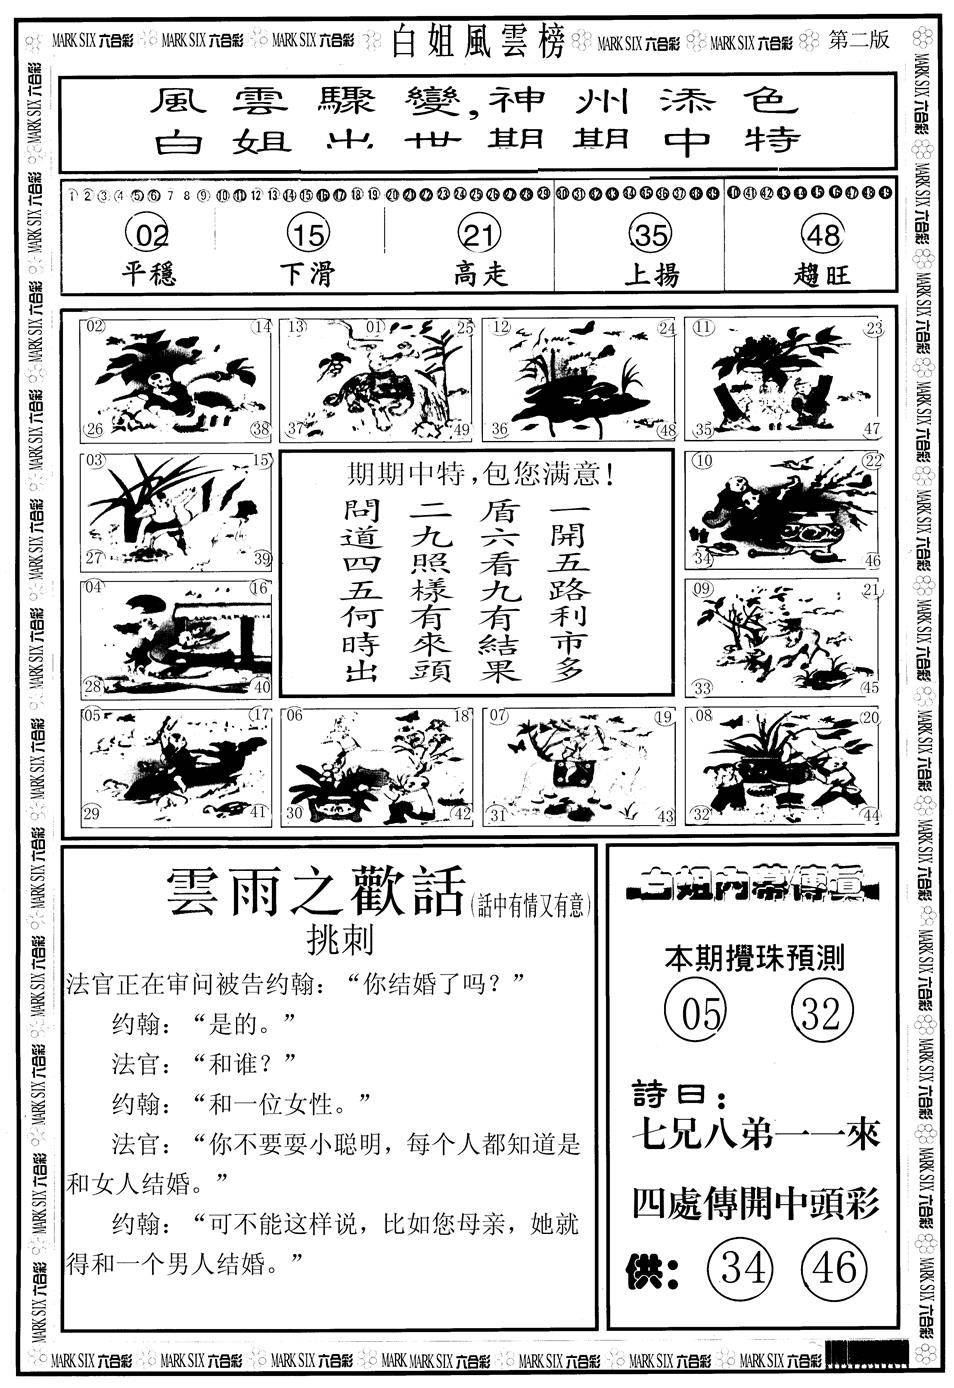 MARK SIX 六合彩 MARK SIX 六合彩 MARK SIX 六合彩 白姐風雲榜 MARK SIX 六合彩 MARK SIX 六合彩 第二版
風雲驟變,神州添色
白姐出世期期中特
1 2 3 4 5 6 7 8 9 10 11 12 13 14 15 16 17 18 19 20 21 22 23 24 25 26 27 28 29 30 31 32 33 34 35 36 37 38 39 40 41 42 43 44 45 46 47 48 49
02 15 21 35 48
平穩 下滑 高走 上揚 趨旺
02 14 13 01 25 12 24 11 23
26 38 37 49 36 48 35 47
03 15
27 39
04 16
28 40
期期中特,包您满意!
一開五路利市多
盾六看九有結果
二九照樣有來頭
問道四五何時出
10 22
34 46
09 21
33 45
05 17 06 18 07 19 08 20
29 41 30 42 31 43 32 44
雲雨之歡話(話中有情又有意)
挑刺
法官正在审问被告约翰：“你结婚了吗？”
约翰：“是的。”
法官：“和谁？”
约翰：“和一位女性。”
法官：“你不要耍小聪明，每个人都知道是
和女人结婚。”
约翰：“可不能这样说，比如您母亲，她就
得和一个男人结婚。”
白姐内幕傳真
本期攪珠預測
05 32
詩曰：
七兄八弟一一來
四處傳開中頭彩
供：34 46
MARK SIX 六合彩 MARK SIX 六合彩 MARK SIX 六合彩 MARK MARK SIX 六合彩 MARK SIX 六合彩 MARK SIX 六合彩 MARK SIX 六合彩